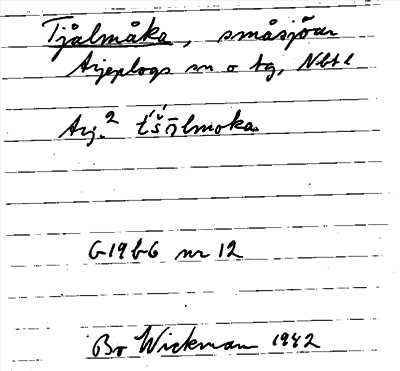 Tjålmåka, småsjöar
Arjeplogs sn o tg, Nbtl
Arj.² t́š́ōlmoka.
G19b6 nr 12
Bo Wickman 1942